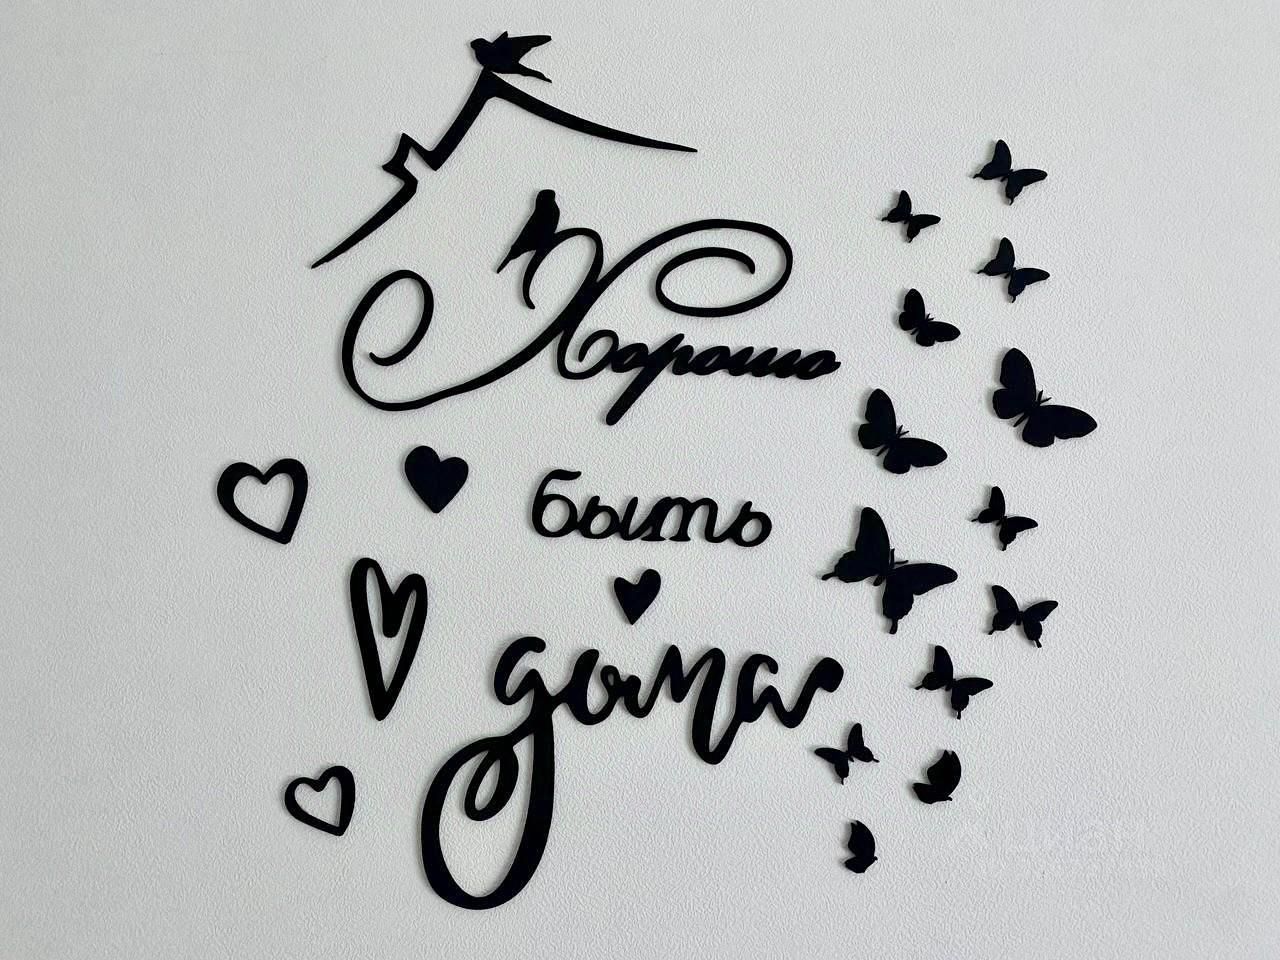 Хорошо
быть
дома